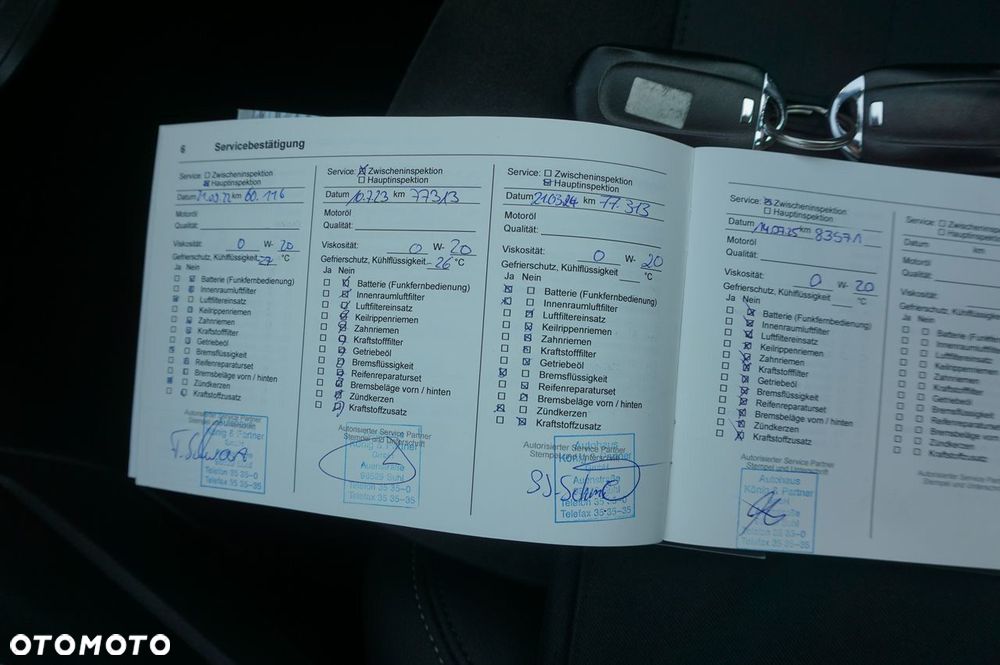 6 Servicebestätigung
Service: Zwischeninspektion
Hauptinspektion
Datum 21.03.22 km 60.116
Motoröl
Qualität:
Viskosität: 0 W- 20
Gefrierschutz, Kühlflüssigkeit -27 °C
Ja Nein
Batterie (Funkfernbedienung)
Innenraumluftfilter
Luftfiltereinsatz
Keilrippenriemen
Zahnriemen
Kraftstofffilter
Getriebeöl
Bremsflüssigkeit
Reifenreparaturset
Bremsbeläge vorn / hinten
Zündkerzen
Kraftstoffzusatz
Autorisierter Service Partner
König & Partner
GmbH
Telefon 35 35-0
Telefax 35 35-35
Service: Zwischeninspektion
Hauptinspektion
Datum 10.7.23 km 77313
Motoröl
Qualität:
Viskosität: 0 W- 20
Gefrierschutz, Kühlflüssigkeit -26 °C
Ja Nein
Batterie (Funkfernbedienung)
Innenraumluftfilter
Luftfiltereinsatz
Keilrippenriemen
Zahnriemen
Kraftstofffilter
Getriebeöl
Bremsflüssigkeit
Reifenreparaturset
Bremsbeläge vorn / hinten
Zündkerzen
Kraftstoffzusatz
Autorisierter Service Partner
Stempel und Unterschrift
König & Partner
GmbH
Auenstraße
98529 Suhl
Telefon 35 35-0
Telefax 35 35-35
Service: Zwischeninspektion
Hauptinspektion
Datum 21.03.24 km 77.313
Motoröl
Qualität:
Viskosität: 0 W- 20
Gefrierschutz, Kühlflüssigkeit °C
Ja Nein
Batterie (Funkfernbedienung)
Innenraumluftfilter
Luftfiltereinsatz
Keilrippenriemen
Zahnriemen
Kraftstofffilter
Getriebeöl
Bremsflüssigkeit
Reifenreparaturset
Bremsbeläge vorn / hinten
Zündkerzen
Kraftstoffzusatz
Autorisierter Service Partner
Stempel und Unterschrift
Autohaus
König & Partner
Auenstraße
Telefon 35 35-0
Telefax 35 35-35
Service: Zwischeninspektion
Hauptinspektion
Datum 14.07.25 km 83571
Motoröl
Qualität:
Viskosität: 0 W- 20
Gefrierschutz, Kühlflüssigkeit °C
Ja Nein
Batterie (Funkfernbedienung)
Innenraumluftfilter
Luftfiltereinsatz
Keilrippenriemen
Zahnriemen
Kraftstofffilter
Getriebeöl
Bremsflüssigkeit
Reifenreparaturset
Bremsbeläge vorn / hinten
Zündkerzen
Kraftstoffzusatz
Autorisierter Service Partner
Stempel und
Autohaus
König & Partner
Telefon 35 35-0
Telefax 35 35-35
Service: Zwischeninspektion
Hauptinspektion
Datum km
Motoröl
Qualität:
Viskosität:
Gefrierschutz, Kühlflüssigkeit
Ja Nein
Batterie
Innenraumluftfilter
Luftfiltereinsatz
Keilrippenriemen
Zahnriemen
Kraftstofffilter
Getriebeöl
Bremsflüssigkeit
Reifenreparaturset
Bremsbeläge vorn
Zündkerzen
Kraftstoffzusatz
Autorisierter Service
Stempel und
OTOMOTO